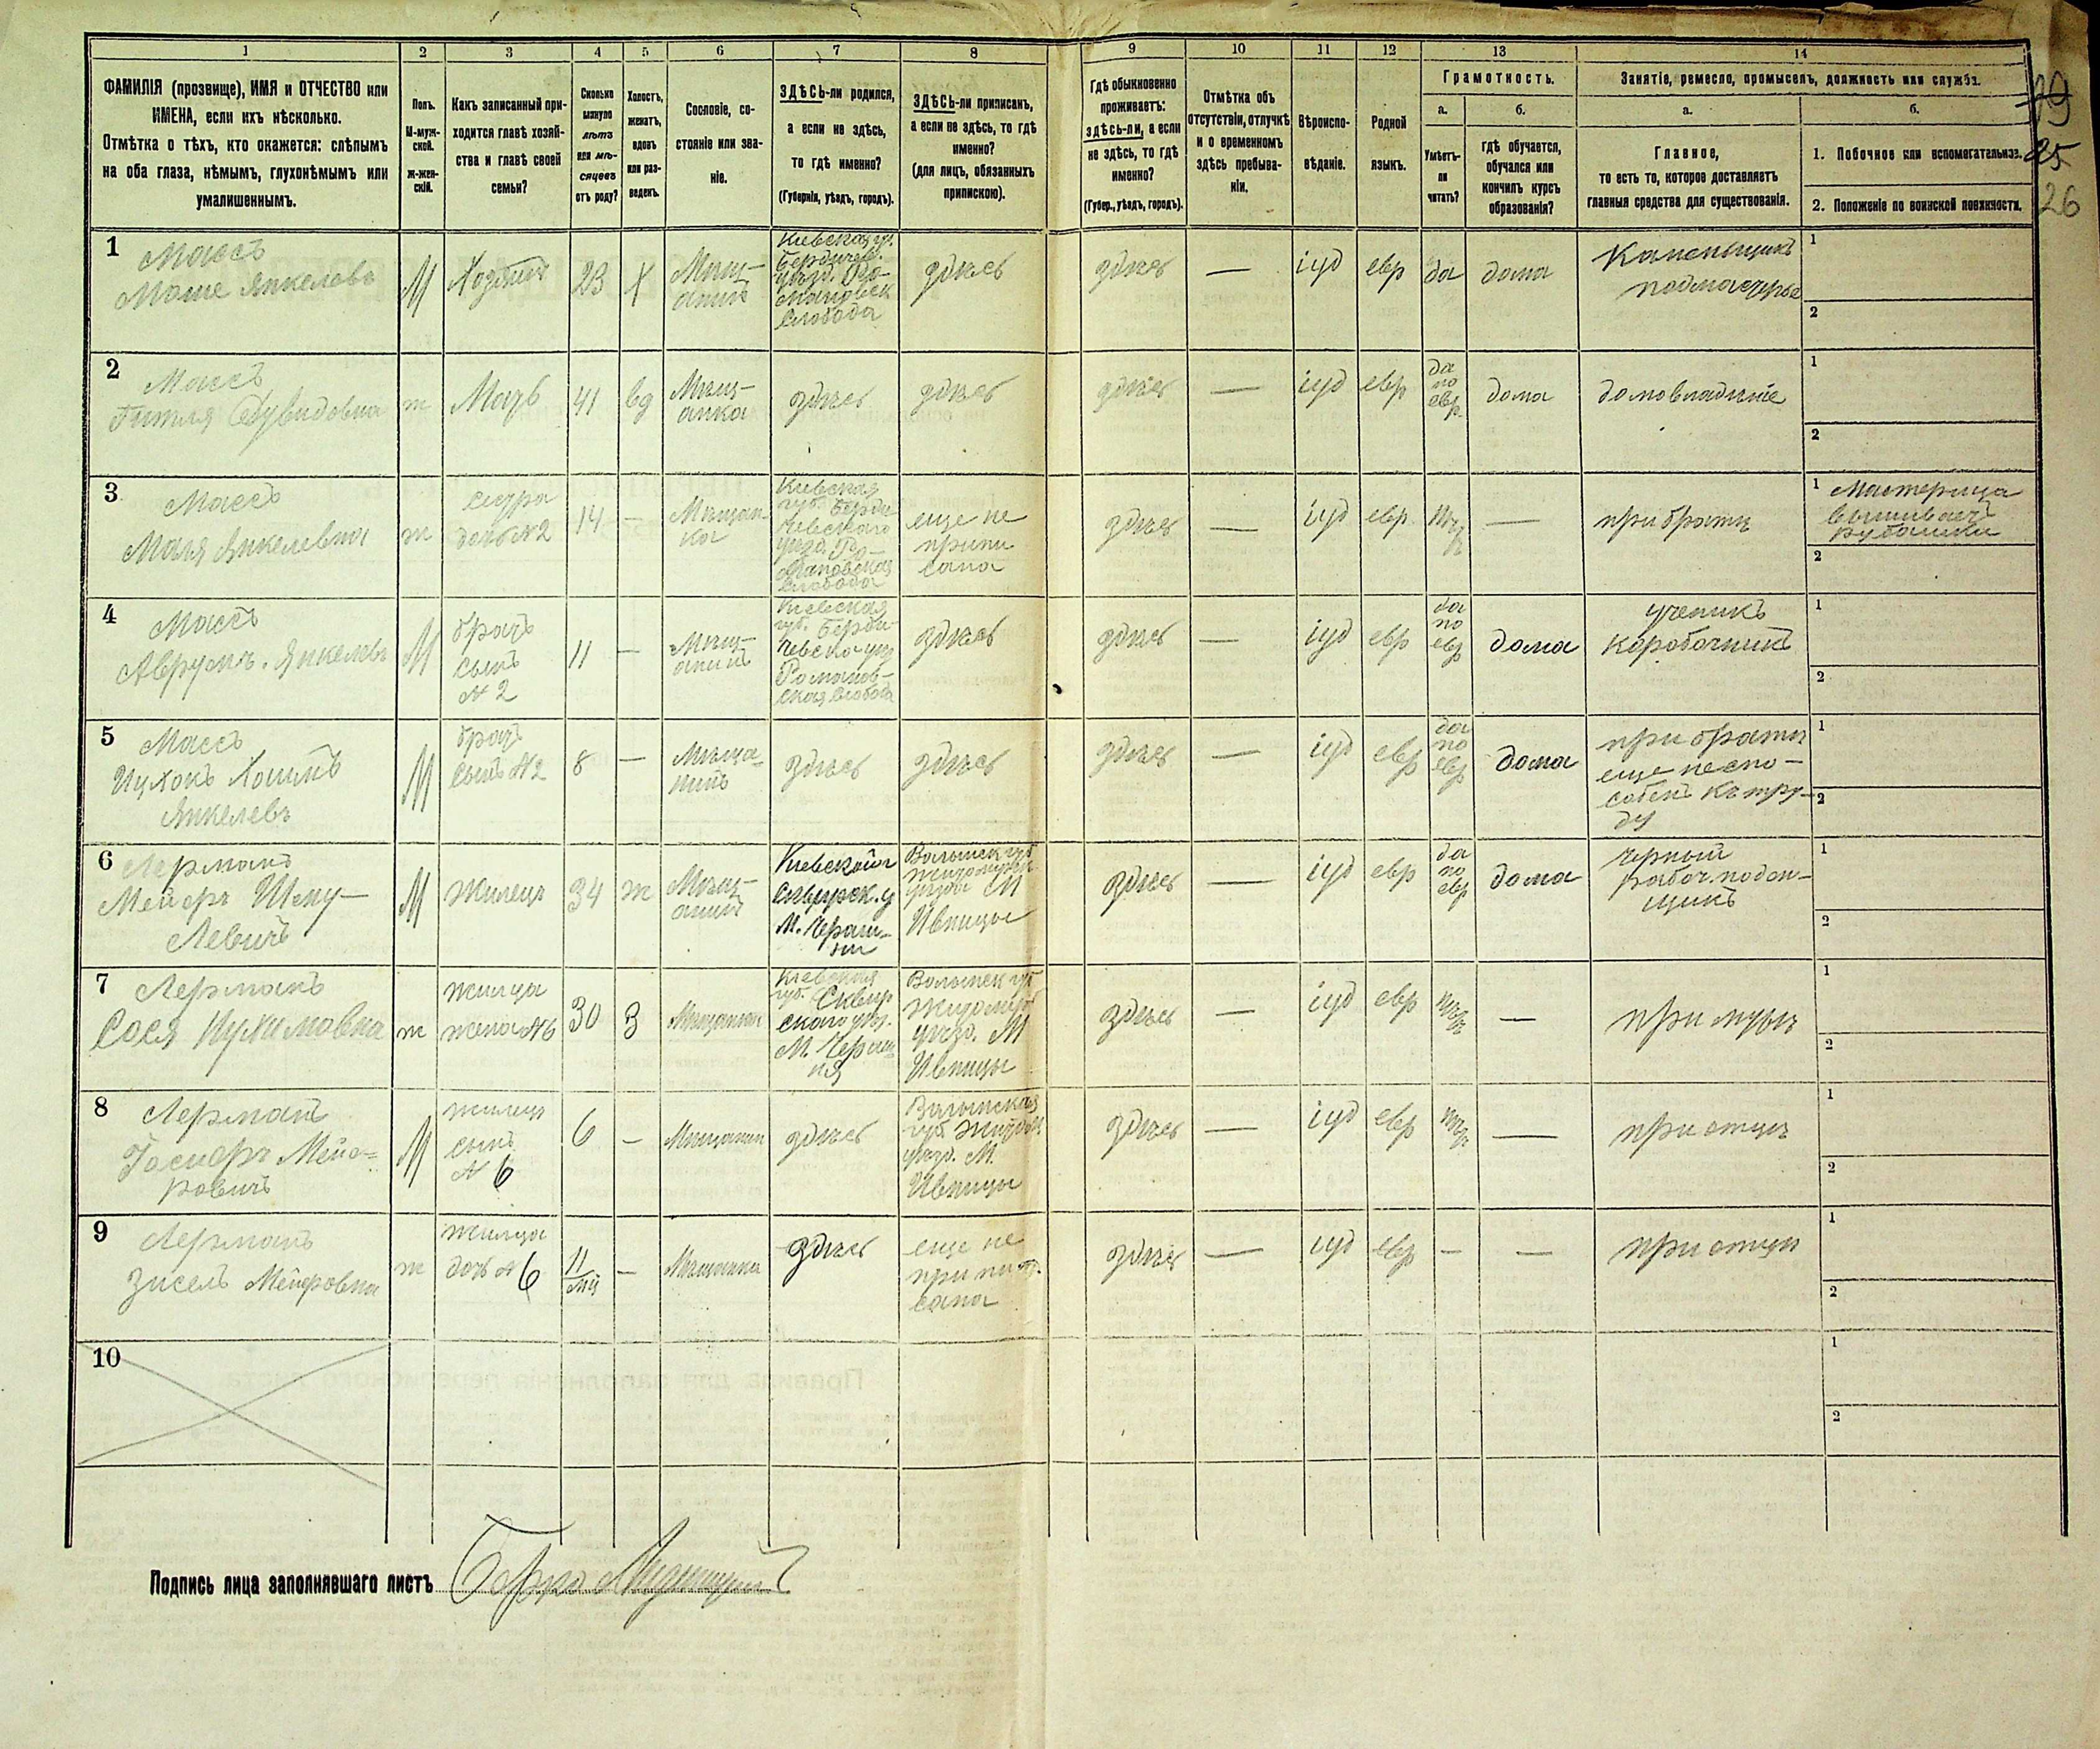 1 2 3 4 5 6 7 8 9 10 11 12 13 14
ФАМИЛІЯ (прозвище), ИМЯ и ОТЧЕСТВО или
ИМЕНА, если ихъ нѣсколько.
Отмѣтка о тѣхъ, кто окажется: слѣпымъ
на оба глаза, нѣмымъ, глухонѣмымъ или
умалишеннымъ.
Полъ.
М-муж-
ской.
ж-жен-
скій.
Какъ записанный при-
ходится главѣ хозяй-
ства и главѣ своей
семьи?
Сколько
минуло
лѣтъ
или мѣ-
сяцевъ
отъ роду?
Холостъ,
женатъ,
вдовъ
или раз-
веденъ.
Сословіе, со-
стояніе или зва-
ніе.
ЗДѢСЬ-ли родился,
а если не здѣсь,
то гдѣ именно?
(Губернія, уѣздъ, городъ).
ЗДѢСЬ-ли приписанъ,
а если не здѣсь, то гдѣ
именно?
(для лицъ, обязанныхъ
припискою).
Гдѣ обыкновенно
проживаетъ:
здѣсь-ли, а если
не здѣсь, то гдѣ
именно?
(Губер., уѣздъ, городъ).
Отмѣтка объ
отсутствіи, отлучкѣ
и о временномъ
здѣсь пребыва-
ніи.
Вѣроиспо-
вѣданіе.
Родной
языкъ.
Грамотность.
а.
Умѣетъ-
ли
читать?
б.
гдѣ обучается,
обучался или
кончилъ курсъ
образованія?
Занятіе, ремесло, промыселъ, должность или служба.
а.
Главное,
то есть то, которое доставляетъ
главныя средства для существованія.
б.
1. Побочное или вспомогательное.
2. Положеніе по воинской повинности.
19
25
26
1
Массъ
Моше Янкелевъ
М
Хозяинъ
23
Х
Мѣщ-
анинъ
Кіевская гу.
Бердиче.
уѣзд. Ро-
мановск
Слобода
здѣсь
здѣсь
—
іуд
евр
да
дома
Каменьщикъ
подмастерье
1
2
2
Массъ
Гитля Дувидовна
ж
Мать
41
вд
Мѣщ-
анка
здѣсь
здѣсь
здѣсь
—
іуд
евр
да
по
евр.
дома
домовладѣніе
1
2
3
Массъ
Маля Янкелевна
ж
сестра
дочь №2
14
—
Мѣщан-
ка
Кіевская
губ. Берди
чевского
уѣзд. Ро-
мановская
Слобода
еще не
припи
сана
здѣсь
—
іуд
евр.
нѣтъ
—
при братѣ
1 Мастерица
вышиваетъ
рубашки
2
4
Массъ
Аврумъ. Янкелевъ
М
братъ
сынъ
№ 2
11
—
Мѣщ-
анинъ
Кіевская
губ. Берди-
чевска уѣз
Романов-
ская Слобода
здѣсь
здѣсь
—
іуд
евр
да
по
евр
дома
ученикъ
коробочникъ
1
2
5
Массъ
Ицхокъ Хаимъ
Янкелевъ
М
братъ
сынъ №2
8
—
Мѣща-
нинъ
здѣсь
здѣсь
здѣсь
—
іуд
евр
да
по
евр
дома
при братѣ
еще неспо-
собенъ къ тру-
ду
1
2
6
Лерманъ
Мейеръ Шму-
левичъ
М
жилецъ
34
ж
Мѣщ-
анинъ
Кіевской г
Сквирск. у
М.
Волынск губ
житомирск
уѣзда М
Ивницы
здѣсь
—
іуд
евр
да
по
евр
дома
черный
рабоч. поден-
щикъ
1
2
7
Лерманъ
Сося
ж
жилица
жена №6
30
З
Мѣщанка
Кіевская
губ. Сквир
ского уѣз.
М.
Волынск губ
Житомирск
уѣзд. М
Ивницы
здѣсь
—
іуд
евр
нѣтъ
—
при мужѣ
1
2
8
Лерманъ
Мейе-
ровичъ
М
жилецъ
сынъ
№ 6
6
—
Мѣщанин
здѣсь
Волынская
губ Житом.
уѣзд. М.
Ивницы
здѣсь
—
іуд
евр
нѣтъ
—
при отцѣ
1
2
9
Лерманъ
Зисель Мейеровна
ж
жилица
дочь № 6
11
мц
—
Мѣщанка
здѣсь
еще не
припи-
сана
здѣсь
—
іуд
евр
—
—
при отцѣ
1
2
10
1
2
Подпись лица заполнявшаго листъ